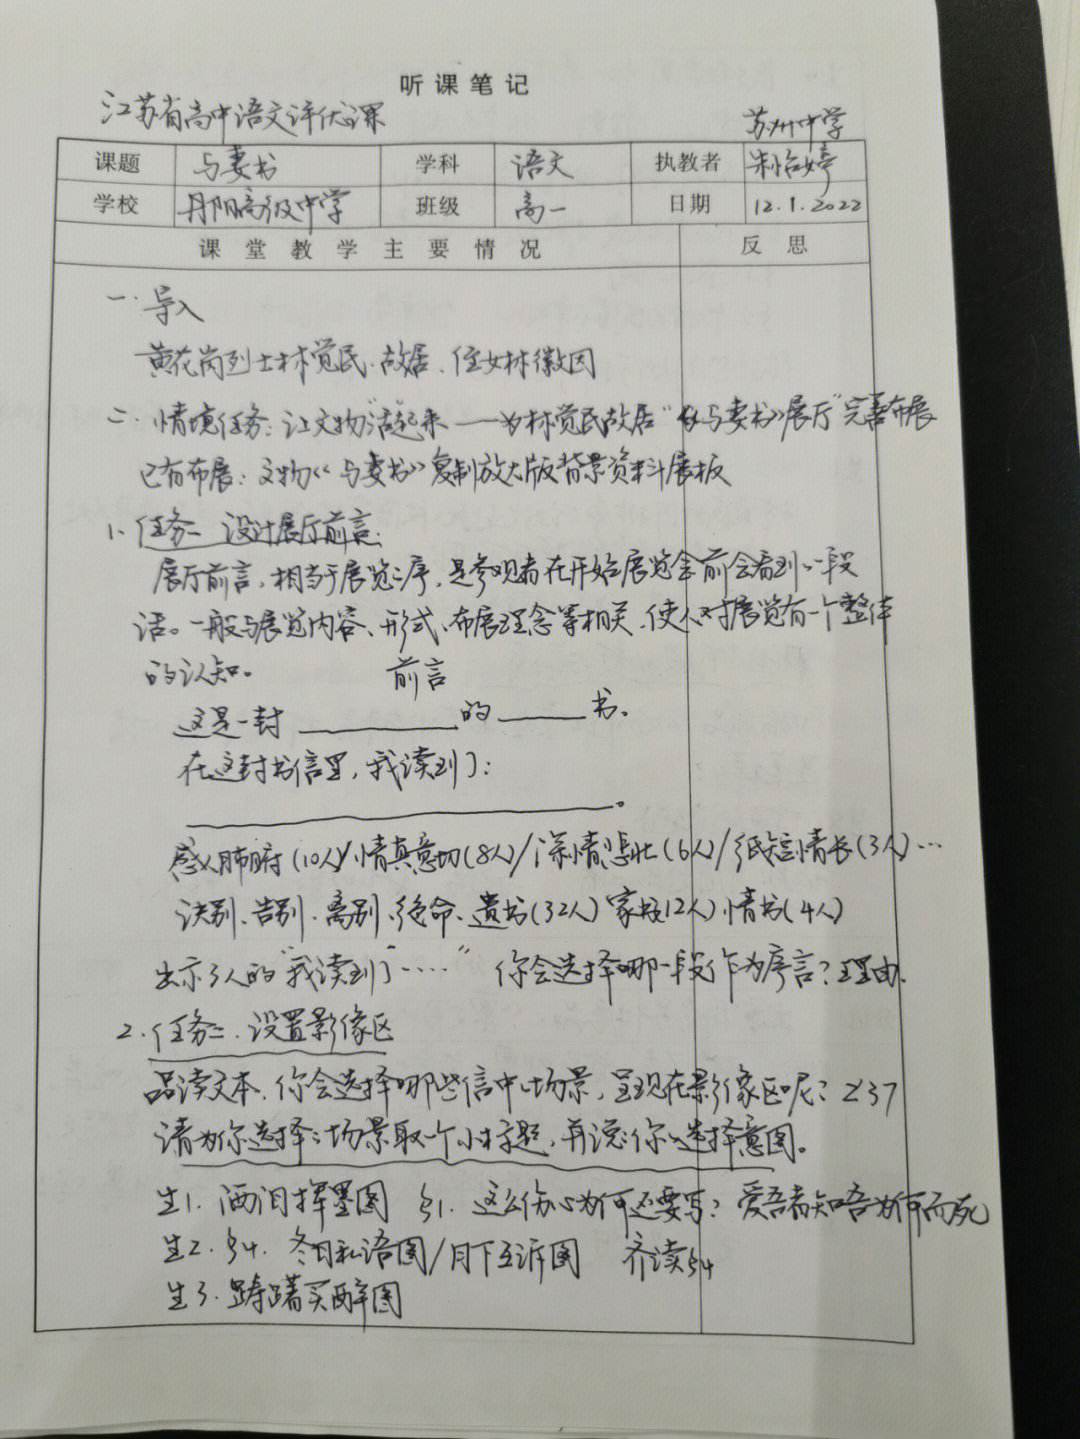 听课笔记
江苏省高中语文评优课
苏州中学
课题 与妻书 学科 语文 执教者
学校 丹阳高级中学 班级 高一 日期 12.1.2022
课堂教学主要情况 反思
一.导入
黄花岗烈士林觉民.故居.侄女林徽因
二.情境任务:让文物"活"起来——为林觉民故居"《与妻书》展厅"完善布展
已有布展:文物《与妻书》复制放大版背景资料展板
1.任务一 设计展厅前言:
展厅前言,相当于展览之序,是参观者在开始展览前会看到一段
话。一般与展览内容、形式、布展理念等相关,使人对展览有一个整体
的认知。 前言
这是一封______的______书。
在这封书信里,我读到了:
______。
感人肺腑(10人)/情真意切(8人)/深情悲壮(6人)/纸短情长(3人)…
诀别、告别、离别、绝命、遗书(32人)家书12人)情书(4人)
出示3人的"我读到了……" 你会选择哪一段作为序言?理由.
2.任务二.设置影像区
品读文本.你会选择哪些信中场景,呈现在影像区呢?≥3个
请为你选择之场景取一个小标题,再说说你选择意图。
生1.洒泪挥墨图 §1.这么伤心为何还要写?爱吾者知吾为何而死
生2.§4.冬日私语图/月下互诉图 齐读§4
生3.踌躇买醉图